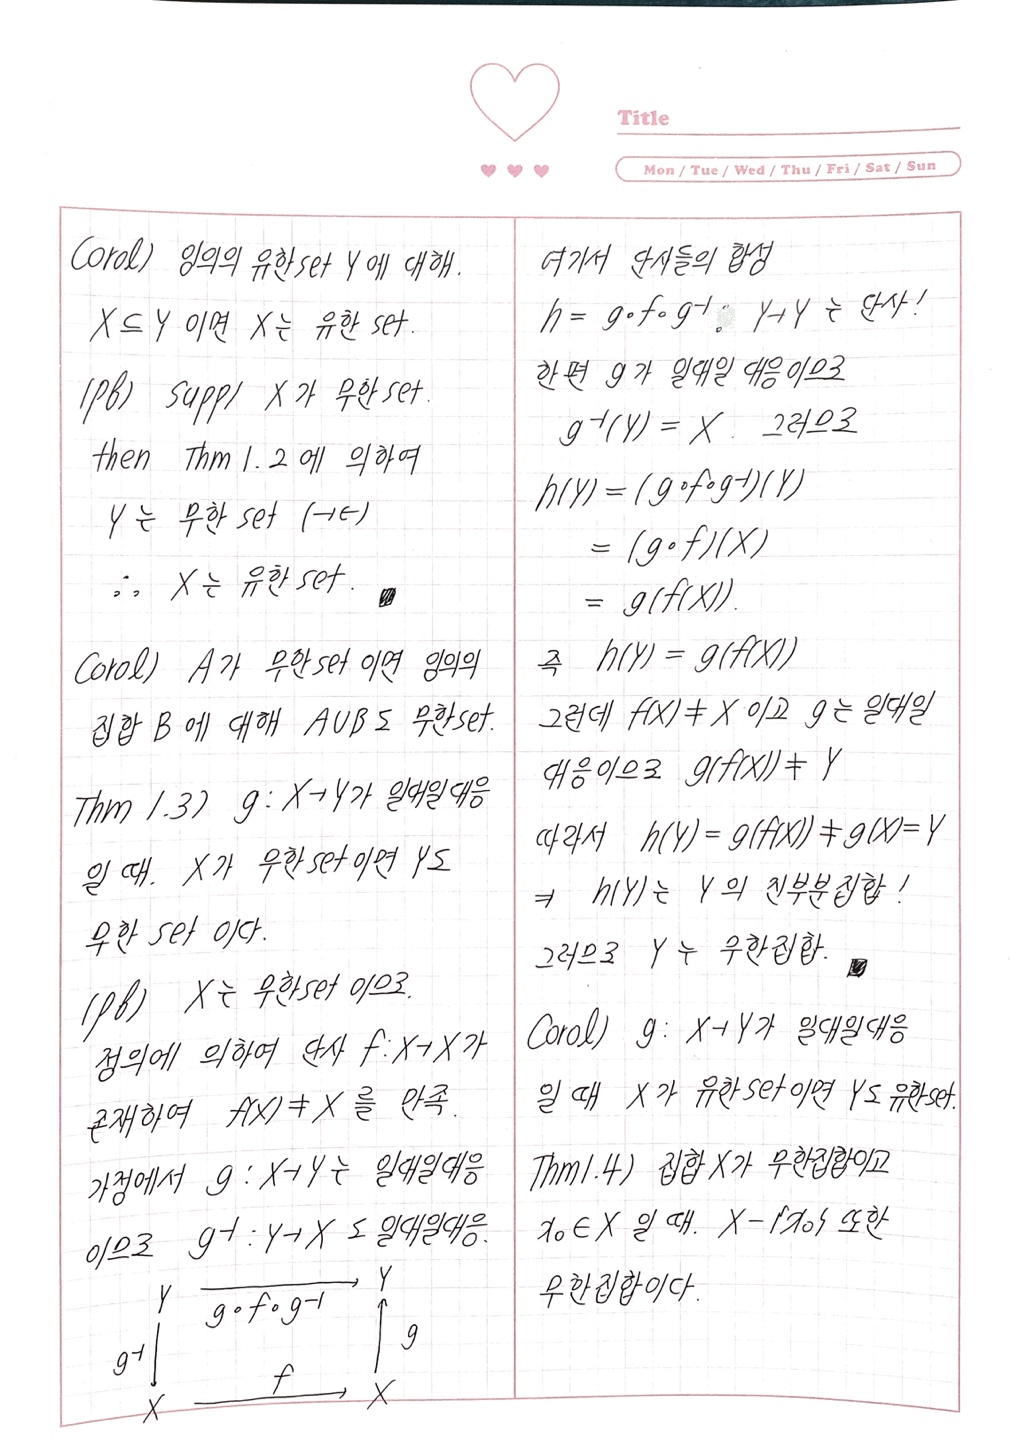 Title
Mon / Tue / Wed / Thu / Fri / Sat / Sun
Corol) 임의의 유한set Y에 대해.
X ⊆ Y 이면 X는 유한 set.
(pf) supp) X가 무한set.
then Thm 1.2 에 의하여
Y는 무한 set (→←)
∴ X는 유한 set.
Corol) A가 무한set 이면 임의의
집합 B에 대해 A∪B도 무한set.
Thm 1.3) g : X→Y가 일대일대응
일 때. X가 무한set이면 Y도
무한 set 이다.
(pf) X는 무한set 이므로.
정의에 의하여 단사 f : X→X가
존재하여 f(X) ≠ X 를 만족.
가정에서 g : X→Y는 일대일대응
이므로 g⁻¹ : Y→X 도 일대일대응.
Y Y
g∘f∘g⁻¹
g⁻¹ g
f
X X
여기서 단사들의 합성
h = g∘f∘g⁻¹ : Y→Y 는 단사!
한편 g가 일대일 대응이므로
g⁻¹(Y) = X. 그러므로
h(Y) = (g∘f∘g⁻¹)(Y)
= (g∘f)(X)
= g(f(X)).
즉 h(Y) = g(f(X))
그런데 f(X) ≠ X 이고 g는 일대일
대응이므로 g(f(X)) ≠ Y
따라서 h(Y) = g(f(X)) ≠ g(X) = Y
⇒ h(Y)는 Y의 진부분집합!
그러므로 Y는 무한집합.
Corol) g : X→Y가 일대일대응
일 때 X가 유한set이면 Y도 유한set.
Thm 1.4) 집합 X가 무한집합이고
x₀ ∈ X 일 때. X - {x₀} 또한
무한집합이다.